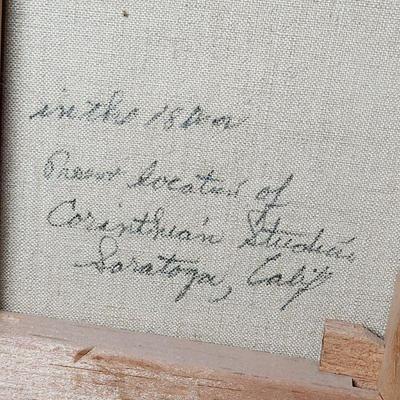 in the 1800s
Present location of
Corinthian Studios,
Saratoga, Calif